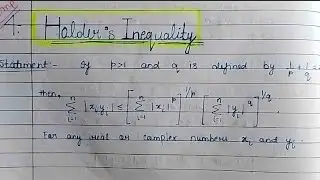 Imp
1. Holder's Inequality
Statement - If p>1 and q is defined by 1/p + 1/q =
then,
∑_{i=1}^{n} |x_i y_i| ≤ [∑_{i=1}^{n} |x_i|^p]^{1/p} [∑_{i=1}^{n} |y_i|^q]^{1/q}
For any real or complex numbers x_i and y_i.